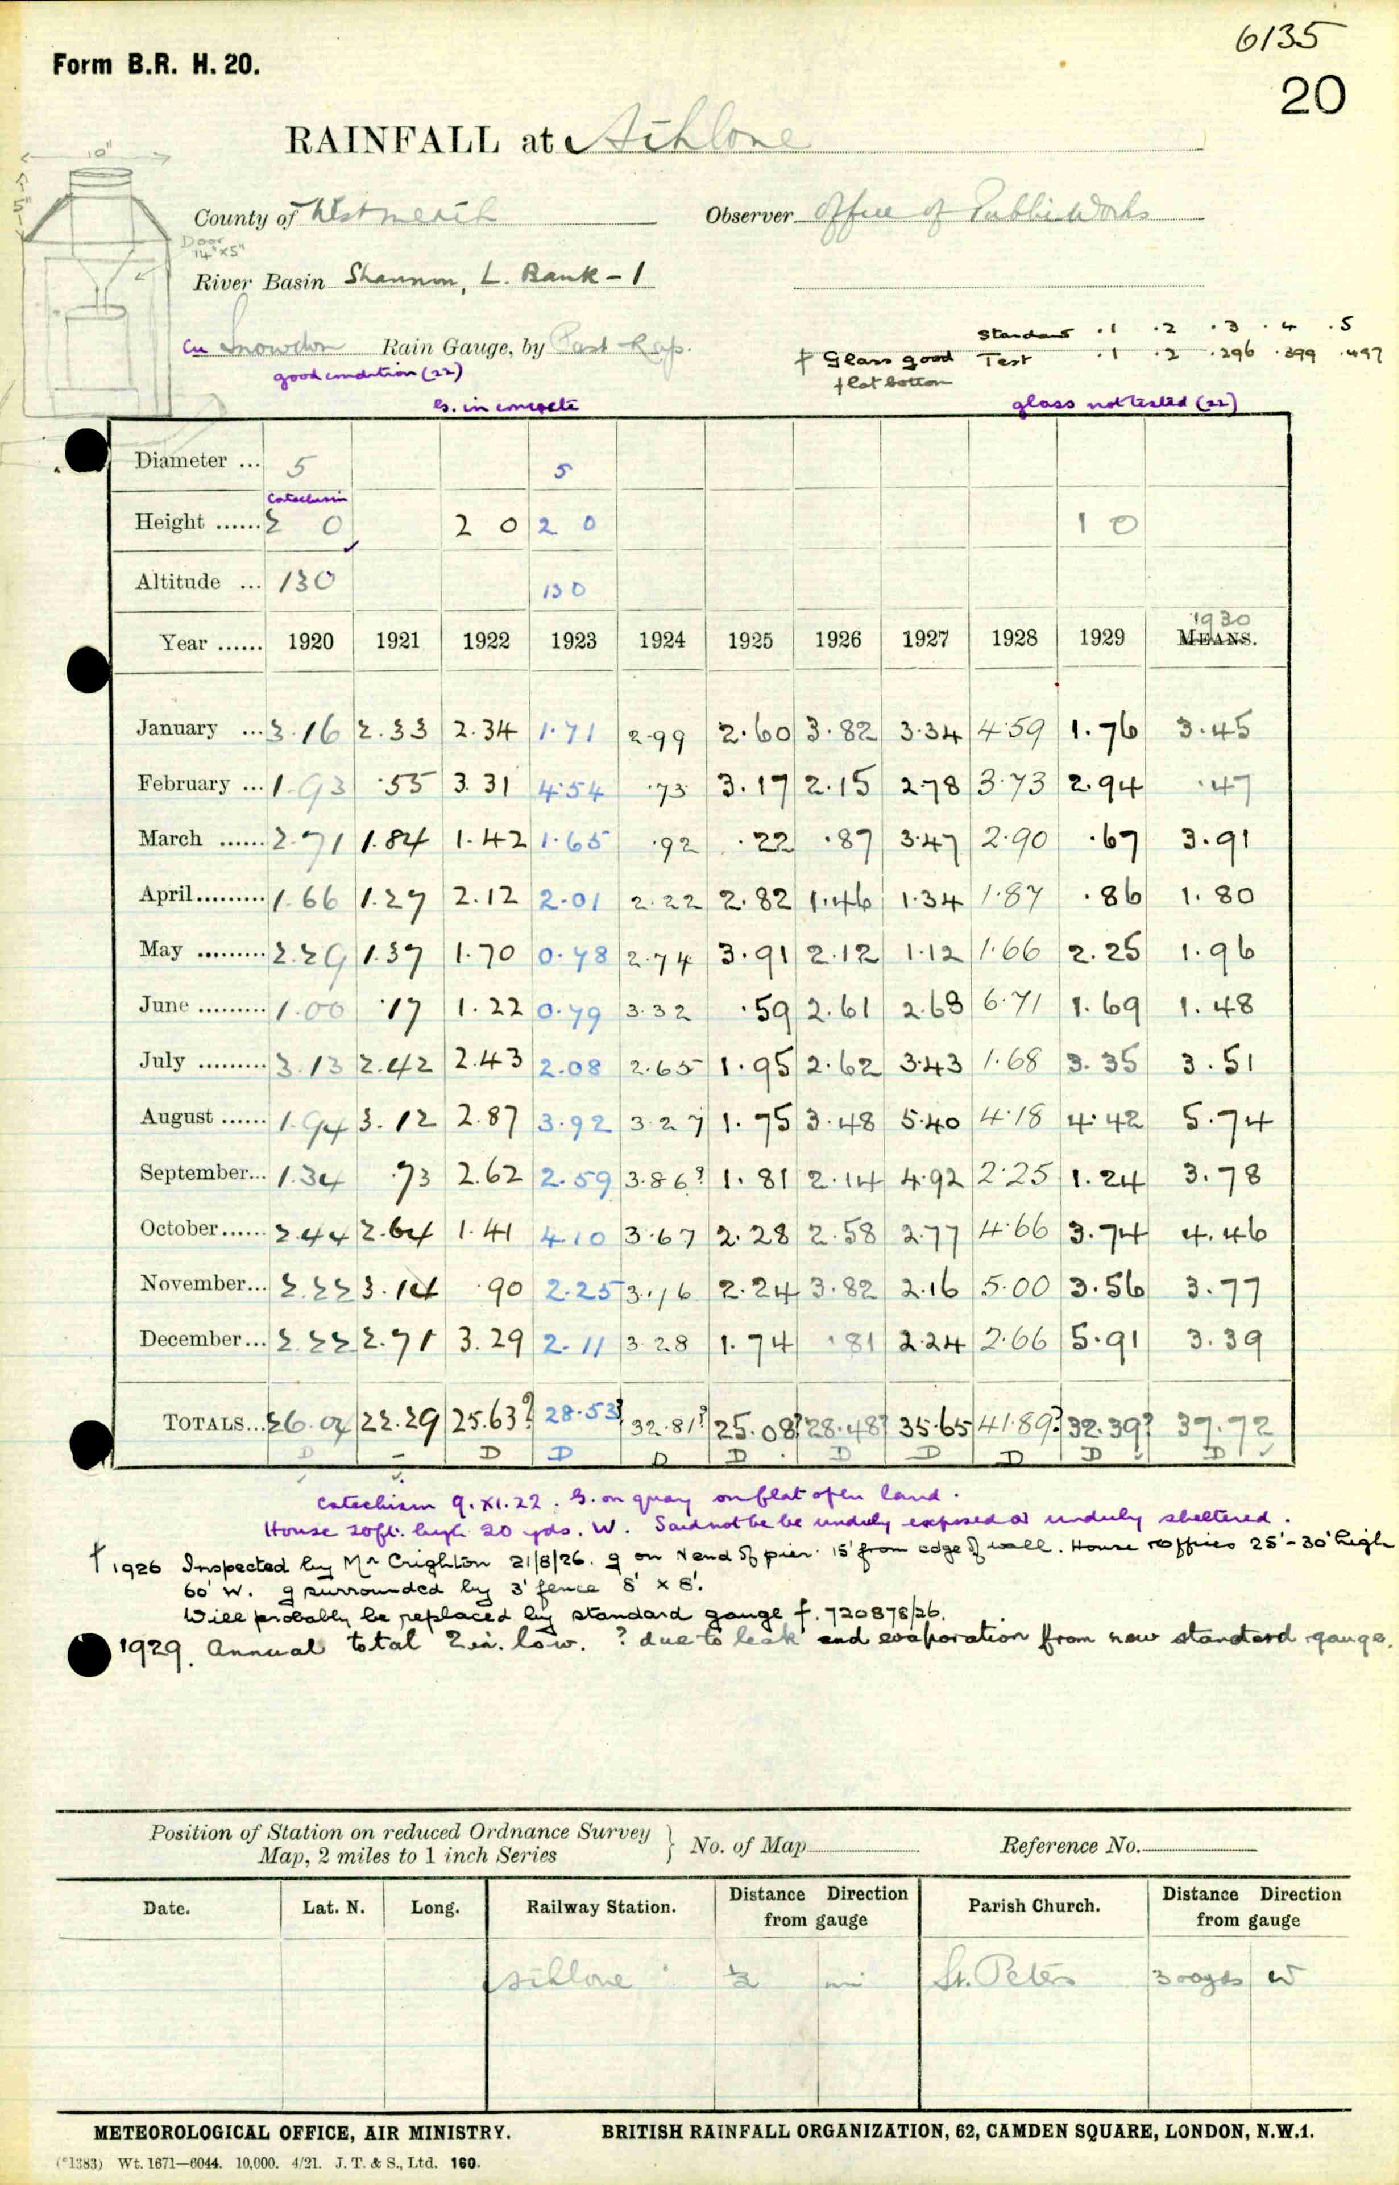 6135
Form B.R. H. 20.
20
RAINFALL at Athlone
10"
5"
County of Westmeath Observer Office of Public Works
Door
14"x5"
River Basin Shannon, L. Bank - 1
Standard .1 .2 .3 .4 .5
Cu Snowdon Rain Gauge, by Past Rap.
† Glass good Test .1 .2 .296 .399 .497
good condition (22) flat bottom
G. in concrete glass not tested (22)
Diameter ... 5 5
Catechism
Height ...... 2 0 2 0 2 0 1 0
Altitude ... 130 130
1930
Year ...... 1920 1921 1922 1923 1924 1925 1926 1927 1928 1929 MEANS.
January ... 3.16 2.33 2.34 1.71 2.99 2.60 3.82 3.34 4.59 1.76 3.45
February ... 1.93 .55 3.31 4.54 .73 3.17 2.15 2.78 3.73 2.94 .47
March ...... 2.71 1.84 1.42 1.65 .92 .22 .87 3.47 2.90 .67 3.91
April ......... 1.66 1.27 2.12 2.01 2.22 2.82 1.46 1.34 1.87 .86 1.80
May ......... 2.29 1.37 1.70 0.78 2.74 3.91 2.12 1.12 1.66 2.25 1.96
June ......... 1.00 .17 1.22 0.79 3.32 .59 2.61 2.68 6.71 1.69 1.48
July ......... 3.13 2.42 2.43 2.08 2.65 1.95 2.62 3.43 1.68 3.35 3.51
August ...... 1.94 3.12 2.87 3.92 3.27 1.75 3.48 5.40 4.18 4.42 5.74
September... 1.34 .73 2.62 2.59 3.86? 1.81 2.14 4.92 2.25 1.24 3.78
October...... 2.44 2.64 1.41 4.10 3.67 2.28 2.58 2.77 4.66 3.74 4.46
November... 2.22 3.14 .90 2.25 3.16 2.24 3.82 2.16 5.00 3.56 3.77
December... 2.22 2.71 3.29 2.11 3.28 1.74 .81 2.24 2.66 5.91 3.39
TOTALS... 26.04 22.29 25.63? 28.53? 32.81? 25.08? 28.48? 35.65 41.89? 32.39? 37.72
D – D D D D D D D D D
Catechism 9.XI.22. G. on quay on flat open land.
House 20ft. high 20 yds. W. Said not be be unduly exposed or unduly sheltered.
† 1926 Inspected by Mr Crighton 21/8/26. g on N end of pier. 15' from edge of wall. House & offices 25'-30' high
60' W. g surrounded by 3' fence 8' x 8'.
Will probably be replaced by standard gauge f. 720878/26.
1929. Annual total 2 in. low. ? due to leak and evaporation from new standard gauge.
Position of Station on reduced Ordnance Survey
Map, 2 miles to 1 inch Series } No. of Map Reference No.
Date. Lat. N. Long. Railway Station. Distance Direction from gauge Parish Church. Distance Direction from gauge
Athlone ½ mi St. Peters 300yds W
METEOROLOGICAL OFFICE, AIR MINISTRY. BRITISH RAINFALL ORGANIZATION, 62, CAMDEN SQUARE, LONDON, N.W.1.
(*1383) Wt. 1671—6044. 10,000. 4/21. J. T. & S., Ltd. 160.